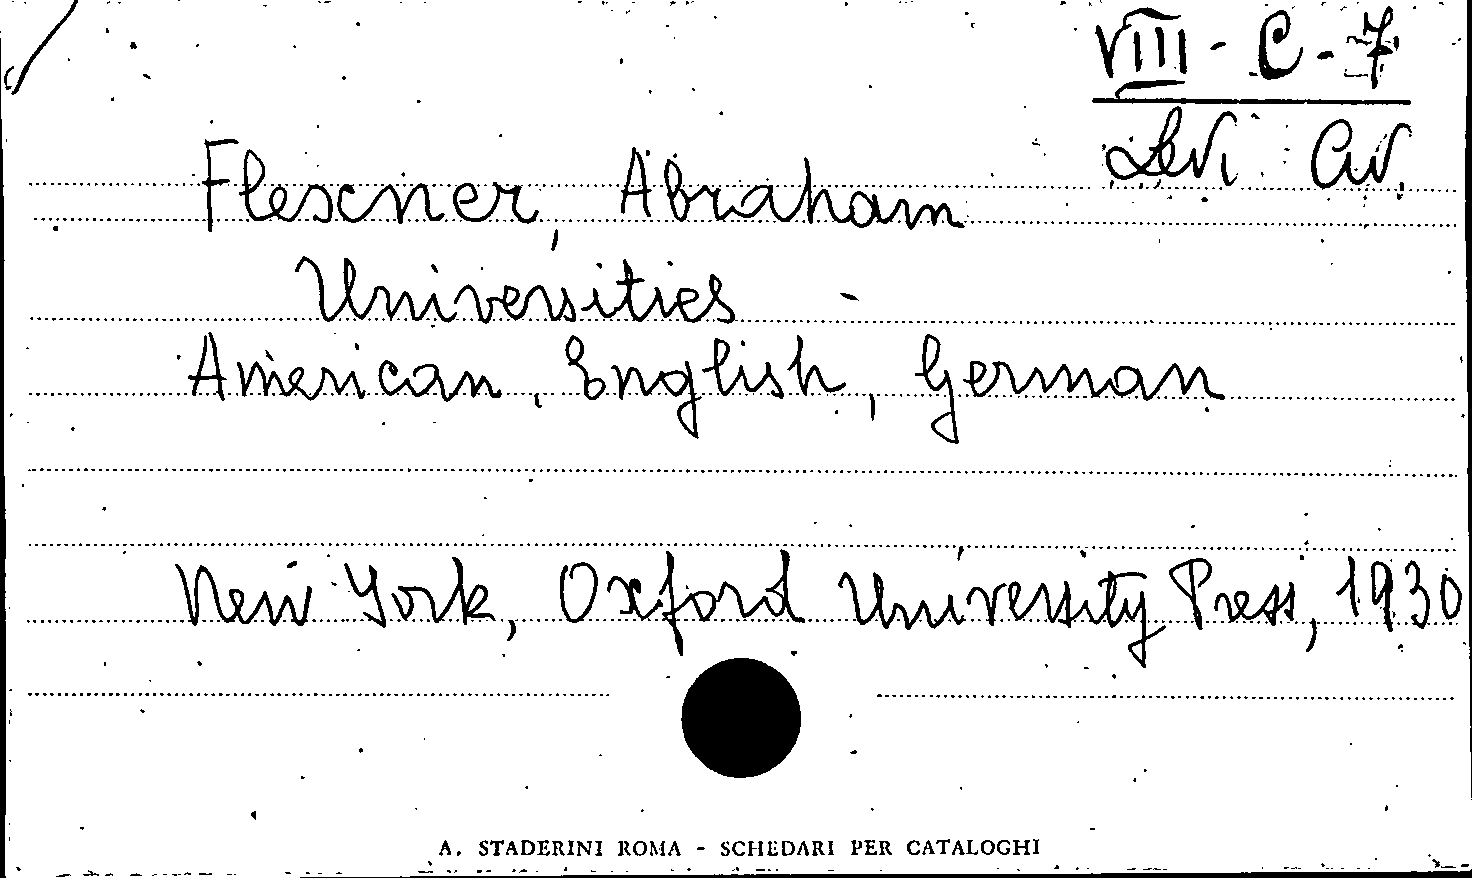 VIII - C - 7
Levi Civ.
Flexner, Abraham
Universities -
American, English, German
New York, Oxford University Press, 1930
A. STADERINI ROMA - SCHEDARI PER CATALOGHI